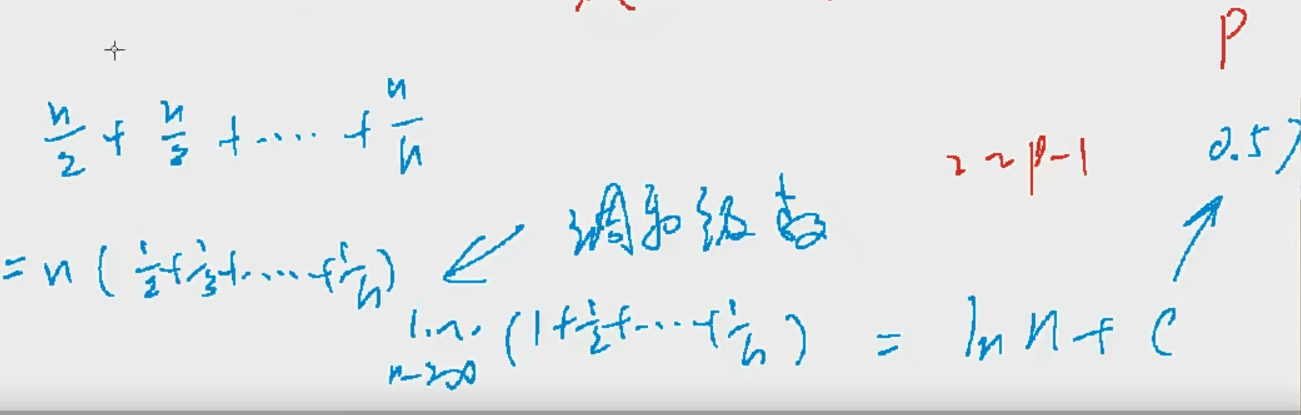 P
n/2 + n/3 + .... + n/n
2 ~ p-1
0.57
= n ( 1/2 + 1/3 + .... + 1/n )
调和级数
lim n->∞ ( 1 + 1/2 + .... + 1/n ) = ln n + C